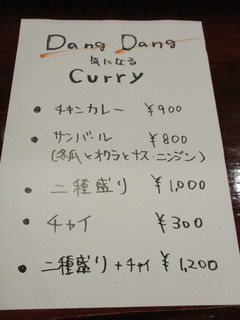 Dang Dang
気になる
Curry
• チキンカレー ¥900
• サンバール ¥800
(冬瓜とオクラとナス・ニンジン)
• 二種盛り ¥1,000
• チャイ ¥300
• 二種盛り+チャイ ¥1,200